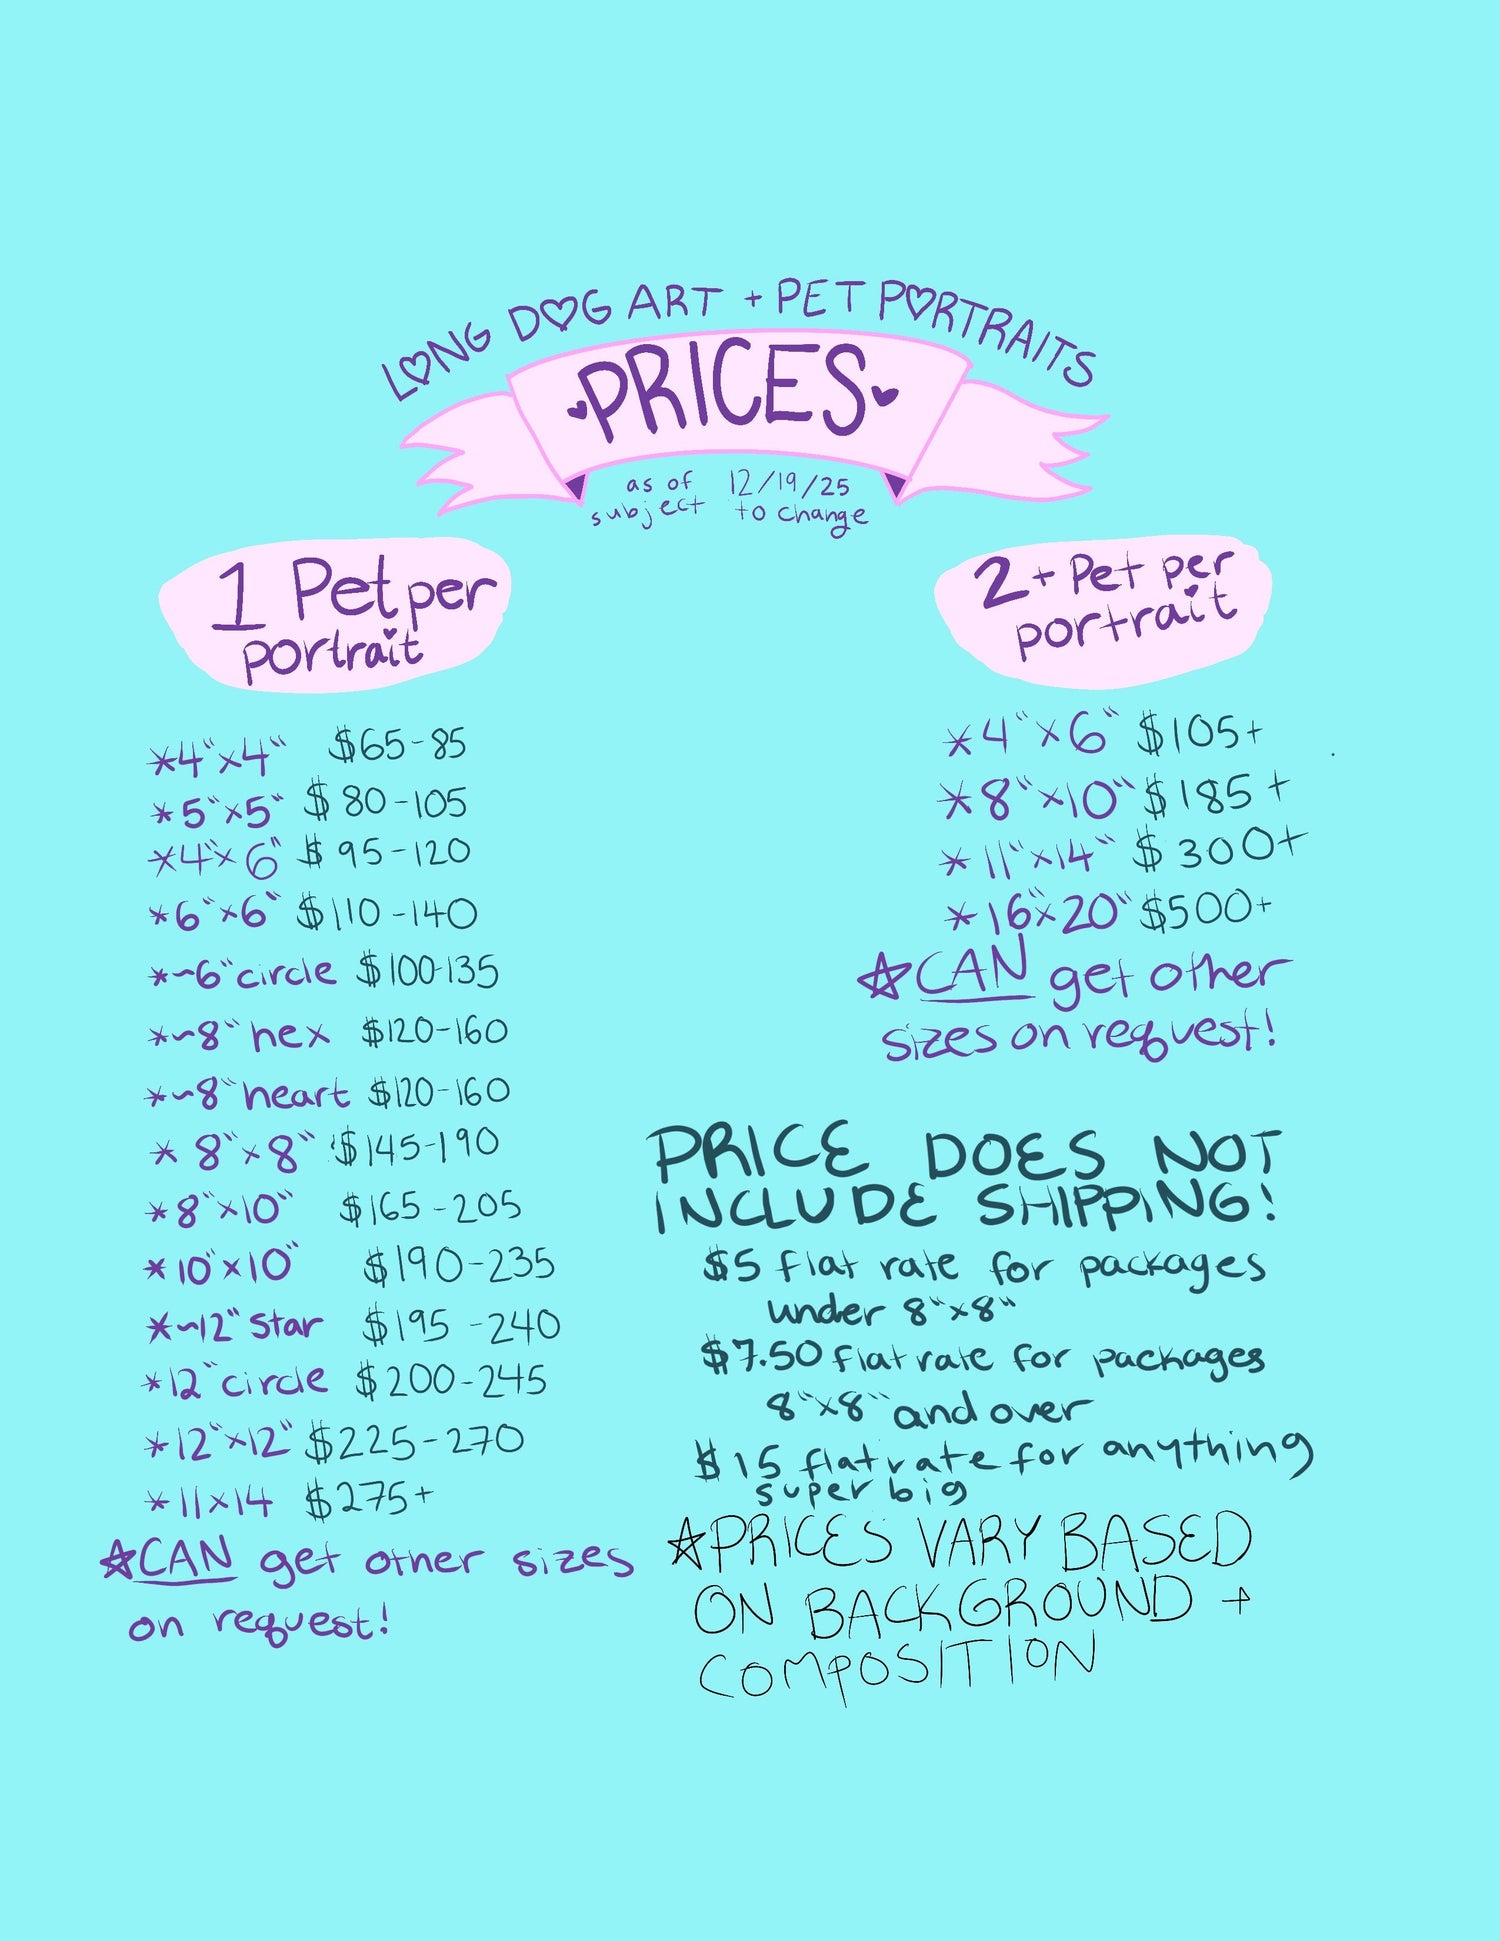 LONG DOG ART + PET PORTRAITS
PRICES
as of 12/19/25
subject to change
1 Pet per
portrait
*4"x4" $65-85
*5"x5" $80-105
*4"x6" $95-120
*6"x6" $110-140
*~6"circle $100-135
*~8" hex $120-160
*~8"heart $120-160
* 8"x8" $145-190
*8"x10" $165-205
*10"x10" $190-235
*~12" star $195-240
*12"circle $200-245
*12"x12" $225-270
*11x14 $275+
☆CAN get other sizes
on request!
2+ Pet per
portrait
*4"x6" $105+
*8"x10" $185+
*11"x14" $300+
*16"x20" $500+
☆CAN get other
sizes on request!
PRICE DOES NOT
INCLUDE SHIPPING!
$5 flat rate for packages
under 8"x8"
$7.50 flat rate for packages
8"x8" and over
$15 flat rate for anything
super big
☆PRICES VARY BASED
ON BACKGROUND +
COMPOSITION